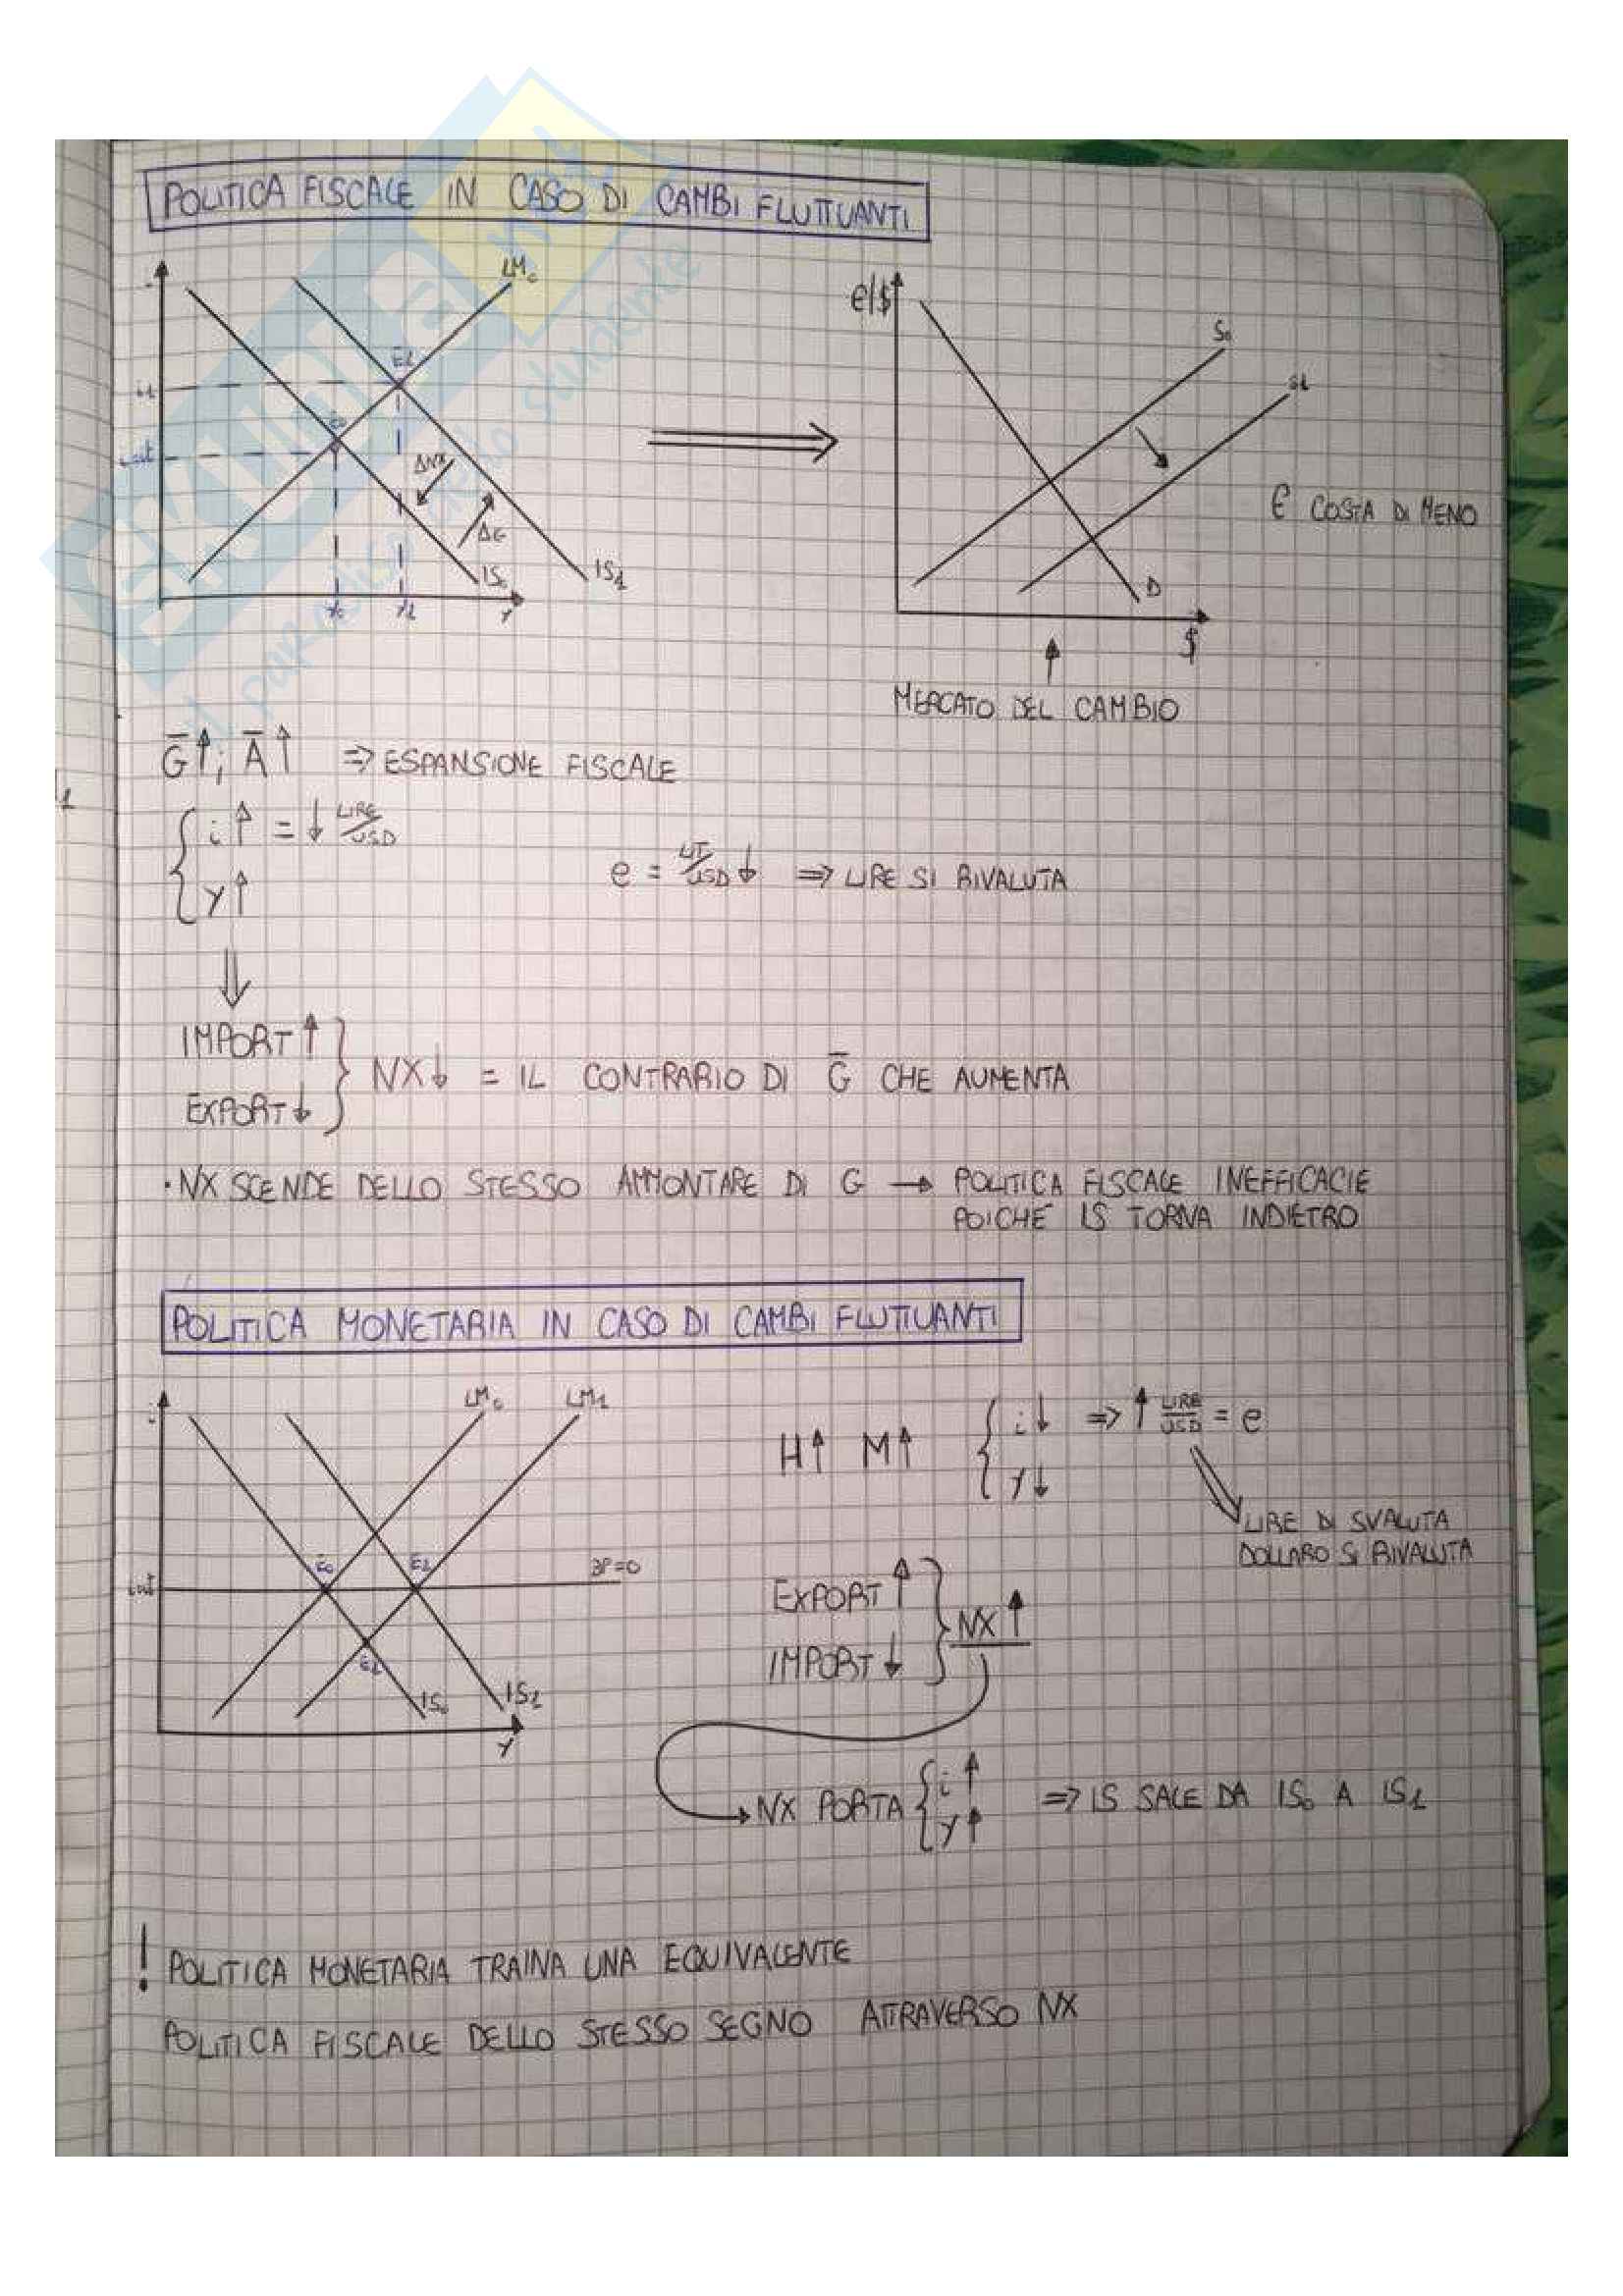 POLITICA FISCALE IN CASO DI CAMBI FLUTTUANTI
LM₀
E1
i1
i est
ΔNX
ΔG
IS₀
IS1
Y₀
Y1
Y
e/$
S₀
S1
D
$
€ COSTA DI MENO
MERCATO DEL CAMBIO
G̅↑; A̅↑ ⇒ ESPANSIONE FISCALE
i↑ = ↓ LIRE/USD
Y↑
e = LIT/USD ↓ ⇒ LIRE SI RIVALUTA
IMPORT↑
EXPORT↓
NX↓ = IL CONTRARIO DI G̅ CHE AUMENTA
• NX SCENDE DELLO STESSO AMMONTARE DI G → POLITICA FISCALE INEFFICACIE
POICHÉ IS TORNA INDIETRO
POLITICA MONETARIA IN CASO DI CAMBI FLUTTUANTI
i
LM₀
LM1
E₀
E2
BP=0
i est
E1
IS₀
IS1
Y
H↑ M↑
i↓ ⇒ ↑ LIRE/USD = e
Y↓
LIRE DI SVALUTA
DOLLARO SI RIVALUTA
EXPORT↑
IMPORT↓
NX↑
NX PORTA
i↑
Y↑
⇒ IS SALE DA IS₀ A IS1
! POLITICA MONETARIA TRAINA UNA EQUIVALENTE
POLITICA FISCALE DELLO STESSO SEGNO ATTRAVERSO NX
SKUOLA.net
il paradiso dello studente